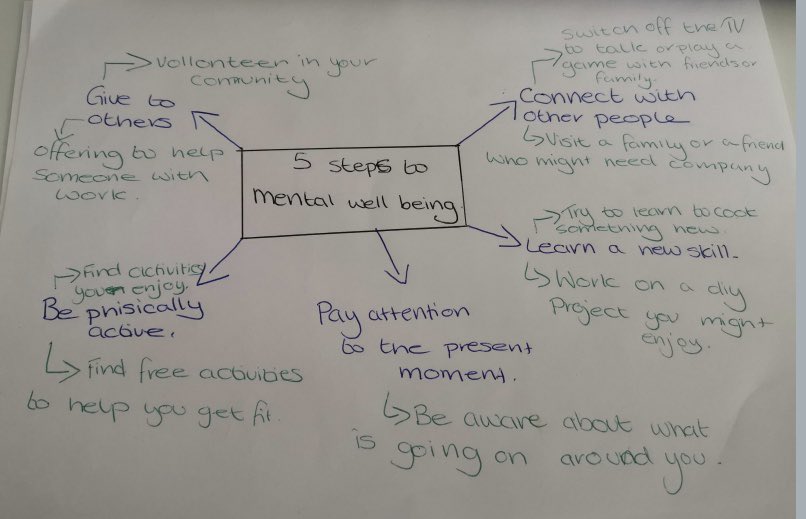 5 steps to
mental well being.
Give to
others
Vollonteer in your
comunity
offering to help
someone with
work.
Connect with
other people
switch off the TV
to talk or play a
game with friends or
family.
Visit a family or a friend
who might need company
Learn a new skill.
Try to learn to cook
something new.
Work on a diy
Project you might
enjoy.
Pay attention
to the present
moment.
Be aware about what
is going on around you.
Be phisically
active.
Find activities
you enjoy.
Find free activities
to help you get fit.